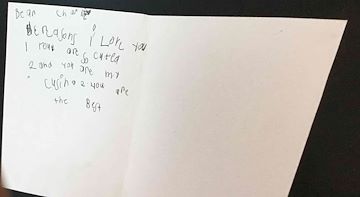 Dear
Reasons i Love you
1 you are so cuteg
2 and you are my
cusin a 2 you are
the Best